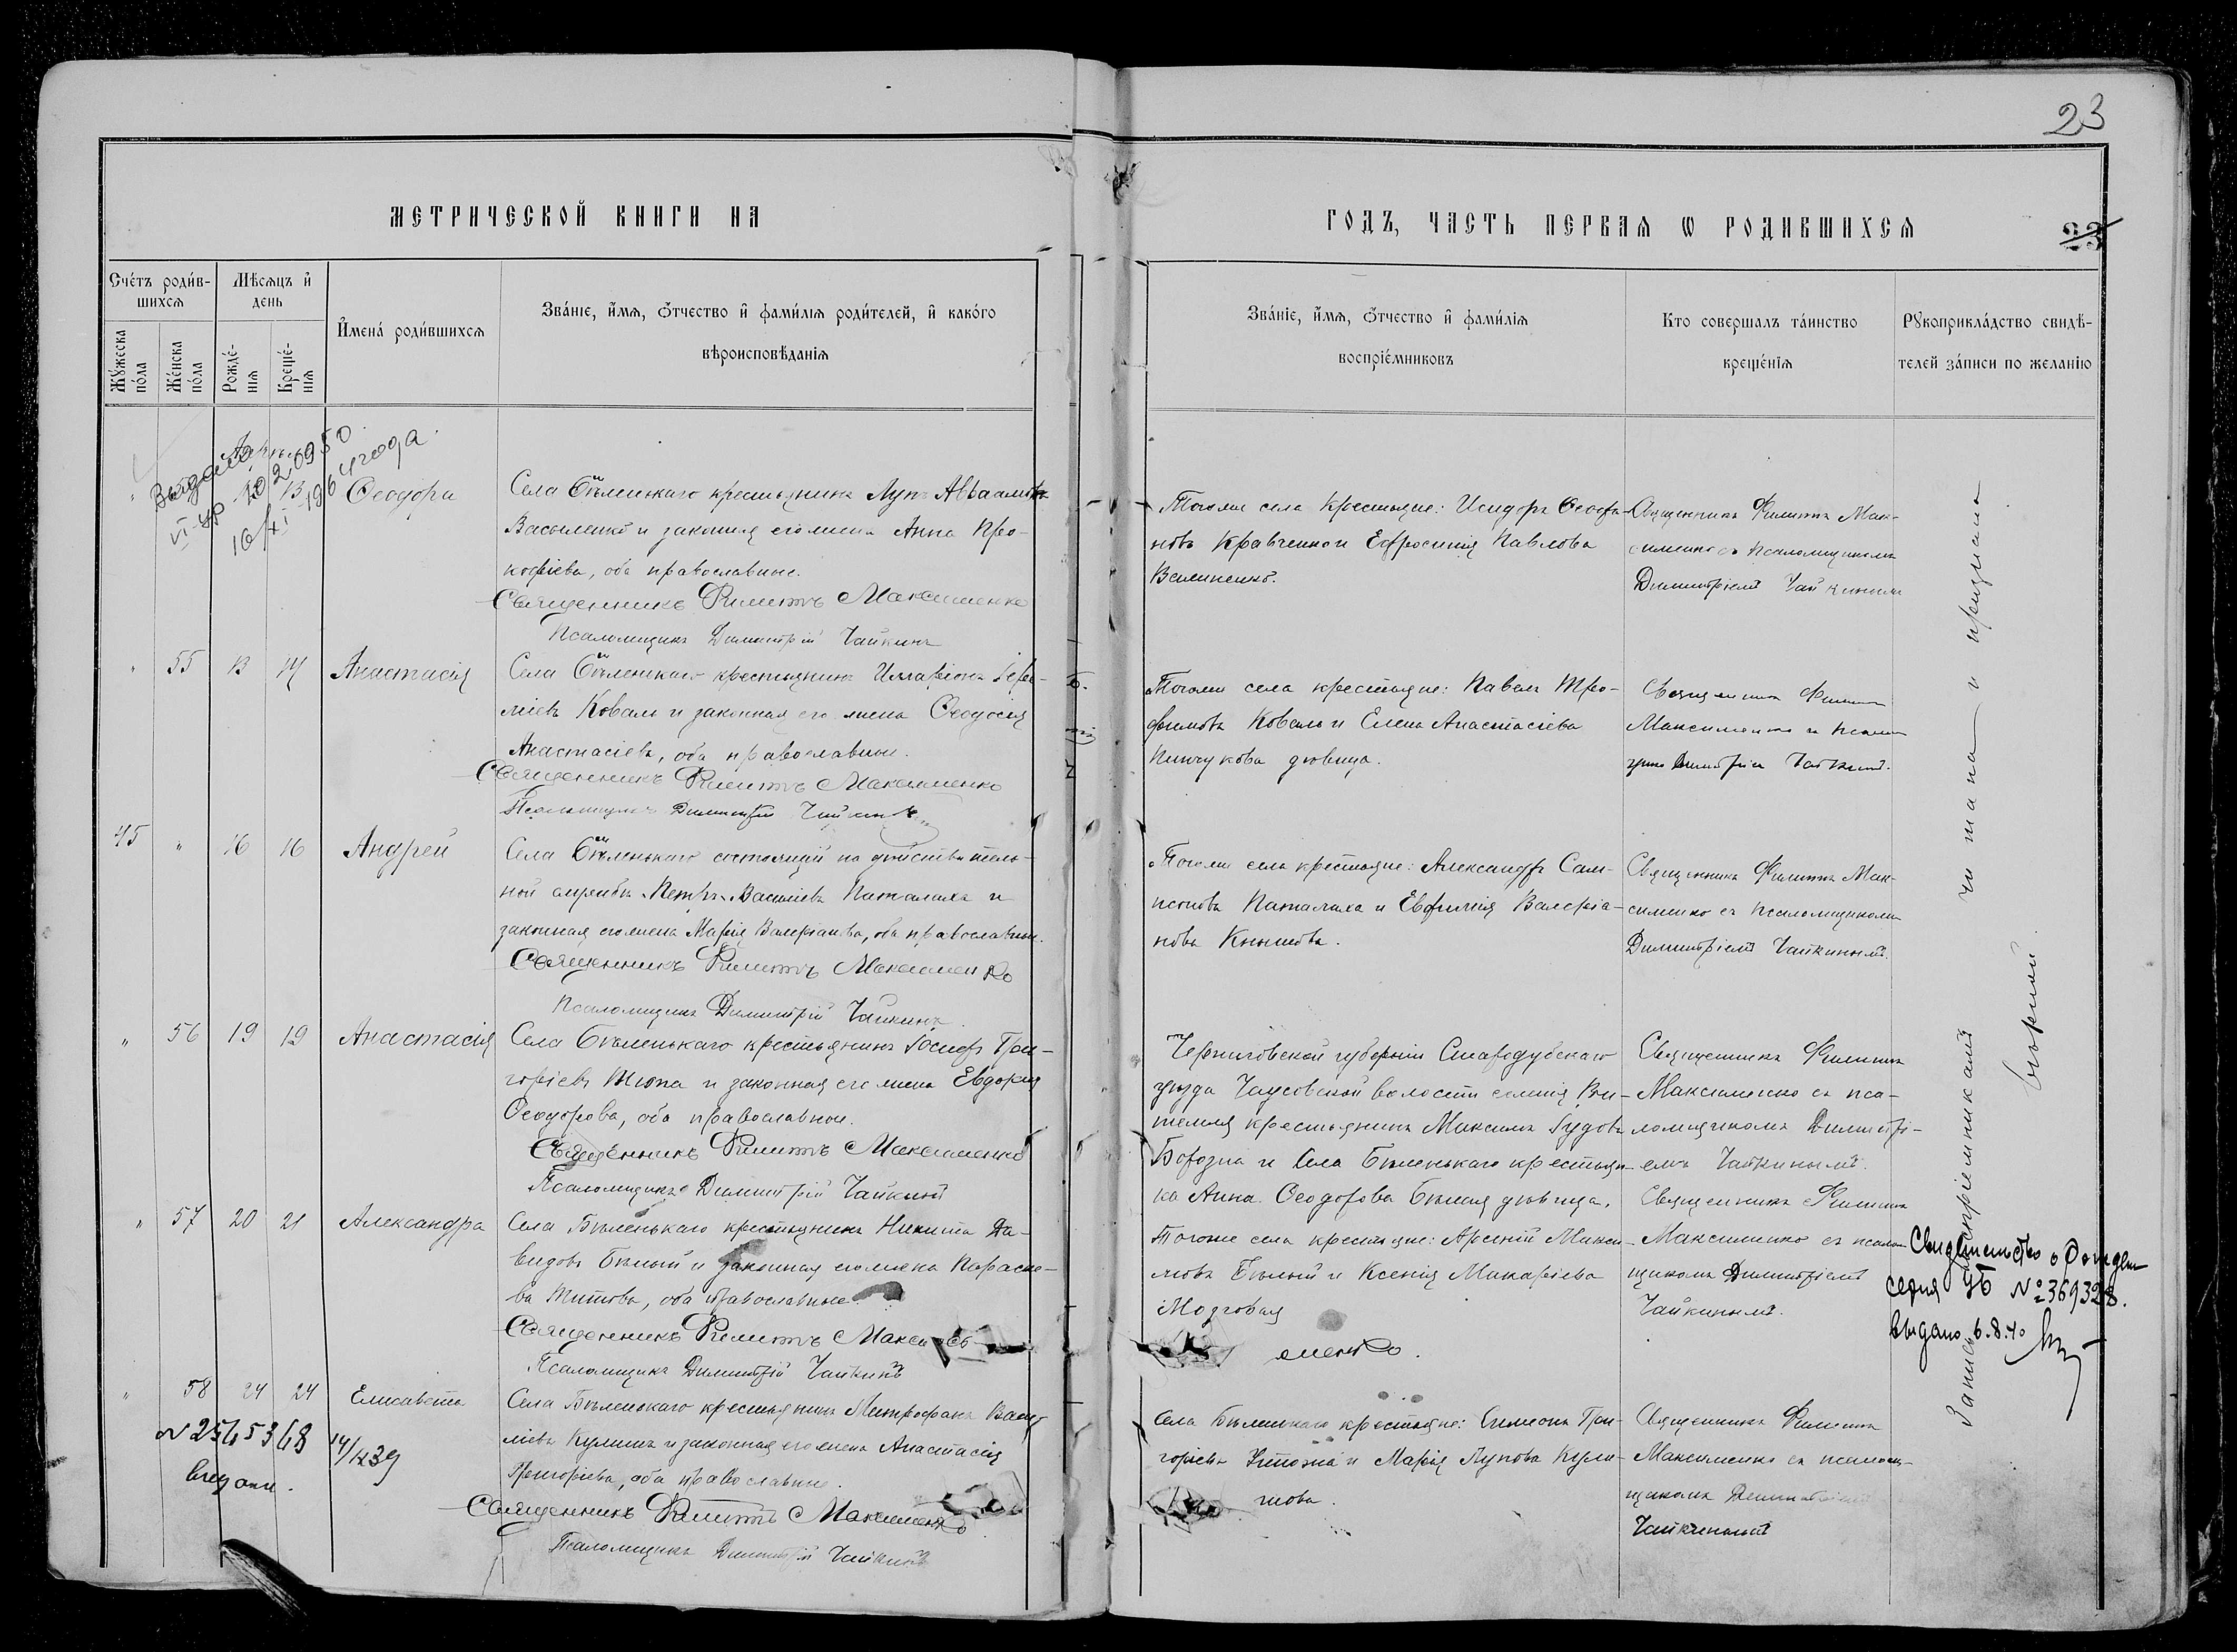 23
МЕТРИЧЕСКОЙ КНИГИ НА
ГОДЪ, ЧАСТЬ ПЕРВАЯ Ѡ РОДИВШИХСЯ
23
Счéтъ роди́в-
шихся
Мѣсяцъ и҆
день
И҆менá роди́вшихся
Звáніе, и҆́мя, ѻ҆́тчество и҆ фами́лія роди́телей, и҆ какóго
вѣроисповѣ́данія
Мꙋ́жеска
пóла
Жéнска
пóла
Рождé-
нія
Крещé-
нія
Звáніе, и҆́мя, ѻ҆́тчество и҆ фами́лія
воспріéмниковъ
Кто совершáлъ тáинство
крещéнія
Рꙋкоприклáдство свидѣ́-
телей зáписи по желáнію
Выдано
VI-ЯР 2020950
16/XI 1964 года.
13 Ѳеодора
Села Бѣленькаго крестьянинъ Лупъ
Василенко и законная его жена Анна Про-
кофіева, оба православные.
Священникъ Филиппъ Максименко
Псаломщикъ Димитрій Чайкинъ
Тогоже села крестьяне: Исидоръ Ѳеофа-
новъ Кравченко и Ефросинія Павлова
Священникъ Филиппъ Мак-
сименко съ псаломщикомъ
Димитріемъ Чайкинымъ
" 55 13 14 Анастасія
Села Бѣленькаго крестьянинъ Илларіонъ Іере-
міевъ Коваль и законная его жена Ѳеодосія
Анастасіева, оба православные.
Священникъ Филиппъ Максименко
Псаломщикъ Димитрій Чайкинъ
Тогоже села крестьяне: Павелъ Тро-
фимовъ Коваль и Елена Анастасіева
Пинчукова дѣвица.
Священникъ Филиппъ
Максименко
Димитрій Чайкинъ.
45 " 16 16 Андрей
Села Бѣленькаго состоящій на дѣйствитель-
ной службѣ Петръ Василіевъ Паталаха и
законная его жена Марія Валеріанова, оба православные.
Священникъ Филиппъ Максименко
Псаломщикъ Димитрій Чайкинъ
Тогоже села крестьяне: Александръ Сам-
псоновъ Паталаха и Евфимія Валеріа-
нова Книшова.
Священникъ Филиппъ Мак-
сименко съ псаломщикомъ
Димитріемъ Чайкинымъ.
" 56 19 19 Анастасія
Села Бѣленькаго крестьянинъ Іосифъ Гри-
горіевъ Тюпа и законная его жена Евдокія
Ѳеодорова, оба православные.
Священникъ Филиппъ Максименко
Псаломщикъ Димитрій Чайкинъ
Черниговской губерніи Стародубскаго
уѣзда Чаусовской волости селенія Ви-
темля крестьянинъ Максимъ Гудовъ
Борозна и села Бѣленькаго крестьян-
ка Анна Ѳеодорова Бѣлая дѣвица.
Священникъ Филиппъ
Максименко съ пса-
ломщикомъ Димитрі-
емъ Чайкинымъ.
" 57 20 21 Александра
Села Бѣленькаго крестьянинъ Никита Да-
видовъ Бѣлый и законная его жена Параске-
ва Титова, оба православные.
Священникъ Филиппъ Макси
менко.
Псаломщикъ Димитрій Чайкинъ
Тогоже села крестьяне: Арсеній Макси-
мовъ Бѣлый и Ксенія Макаріева
Мозговая
Священникъ Филиппъ
Максименко съ псалом-
щикомъ Димитріемъ
Чайкинымъ.
Свидетельство о рожден
серия ЧБ № 369328.
выдано 6.8.40
" 58 24 24 Елисавета
Села Бѣленькаго крестьянинъ Митрофанъ Васи-
ліевъ Кулишъ и законная его жена Анастасія
Григоріева, оба православные.
Священникъ Филиппъ Максименко
Псаломщикъ Димитрій Чайкинъ
Села Бѣленькаго крестьяне: Симеонъ Гри-
горіевъ и Марія Лупова Кули-
шова.
Священникъ Филиппъ
Максименко съ псалом-
щикомъ Димитріемъ
Чайкинымъ
Запись воспріемниками читана и признана
вѣрной.